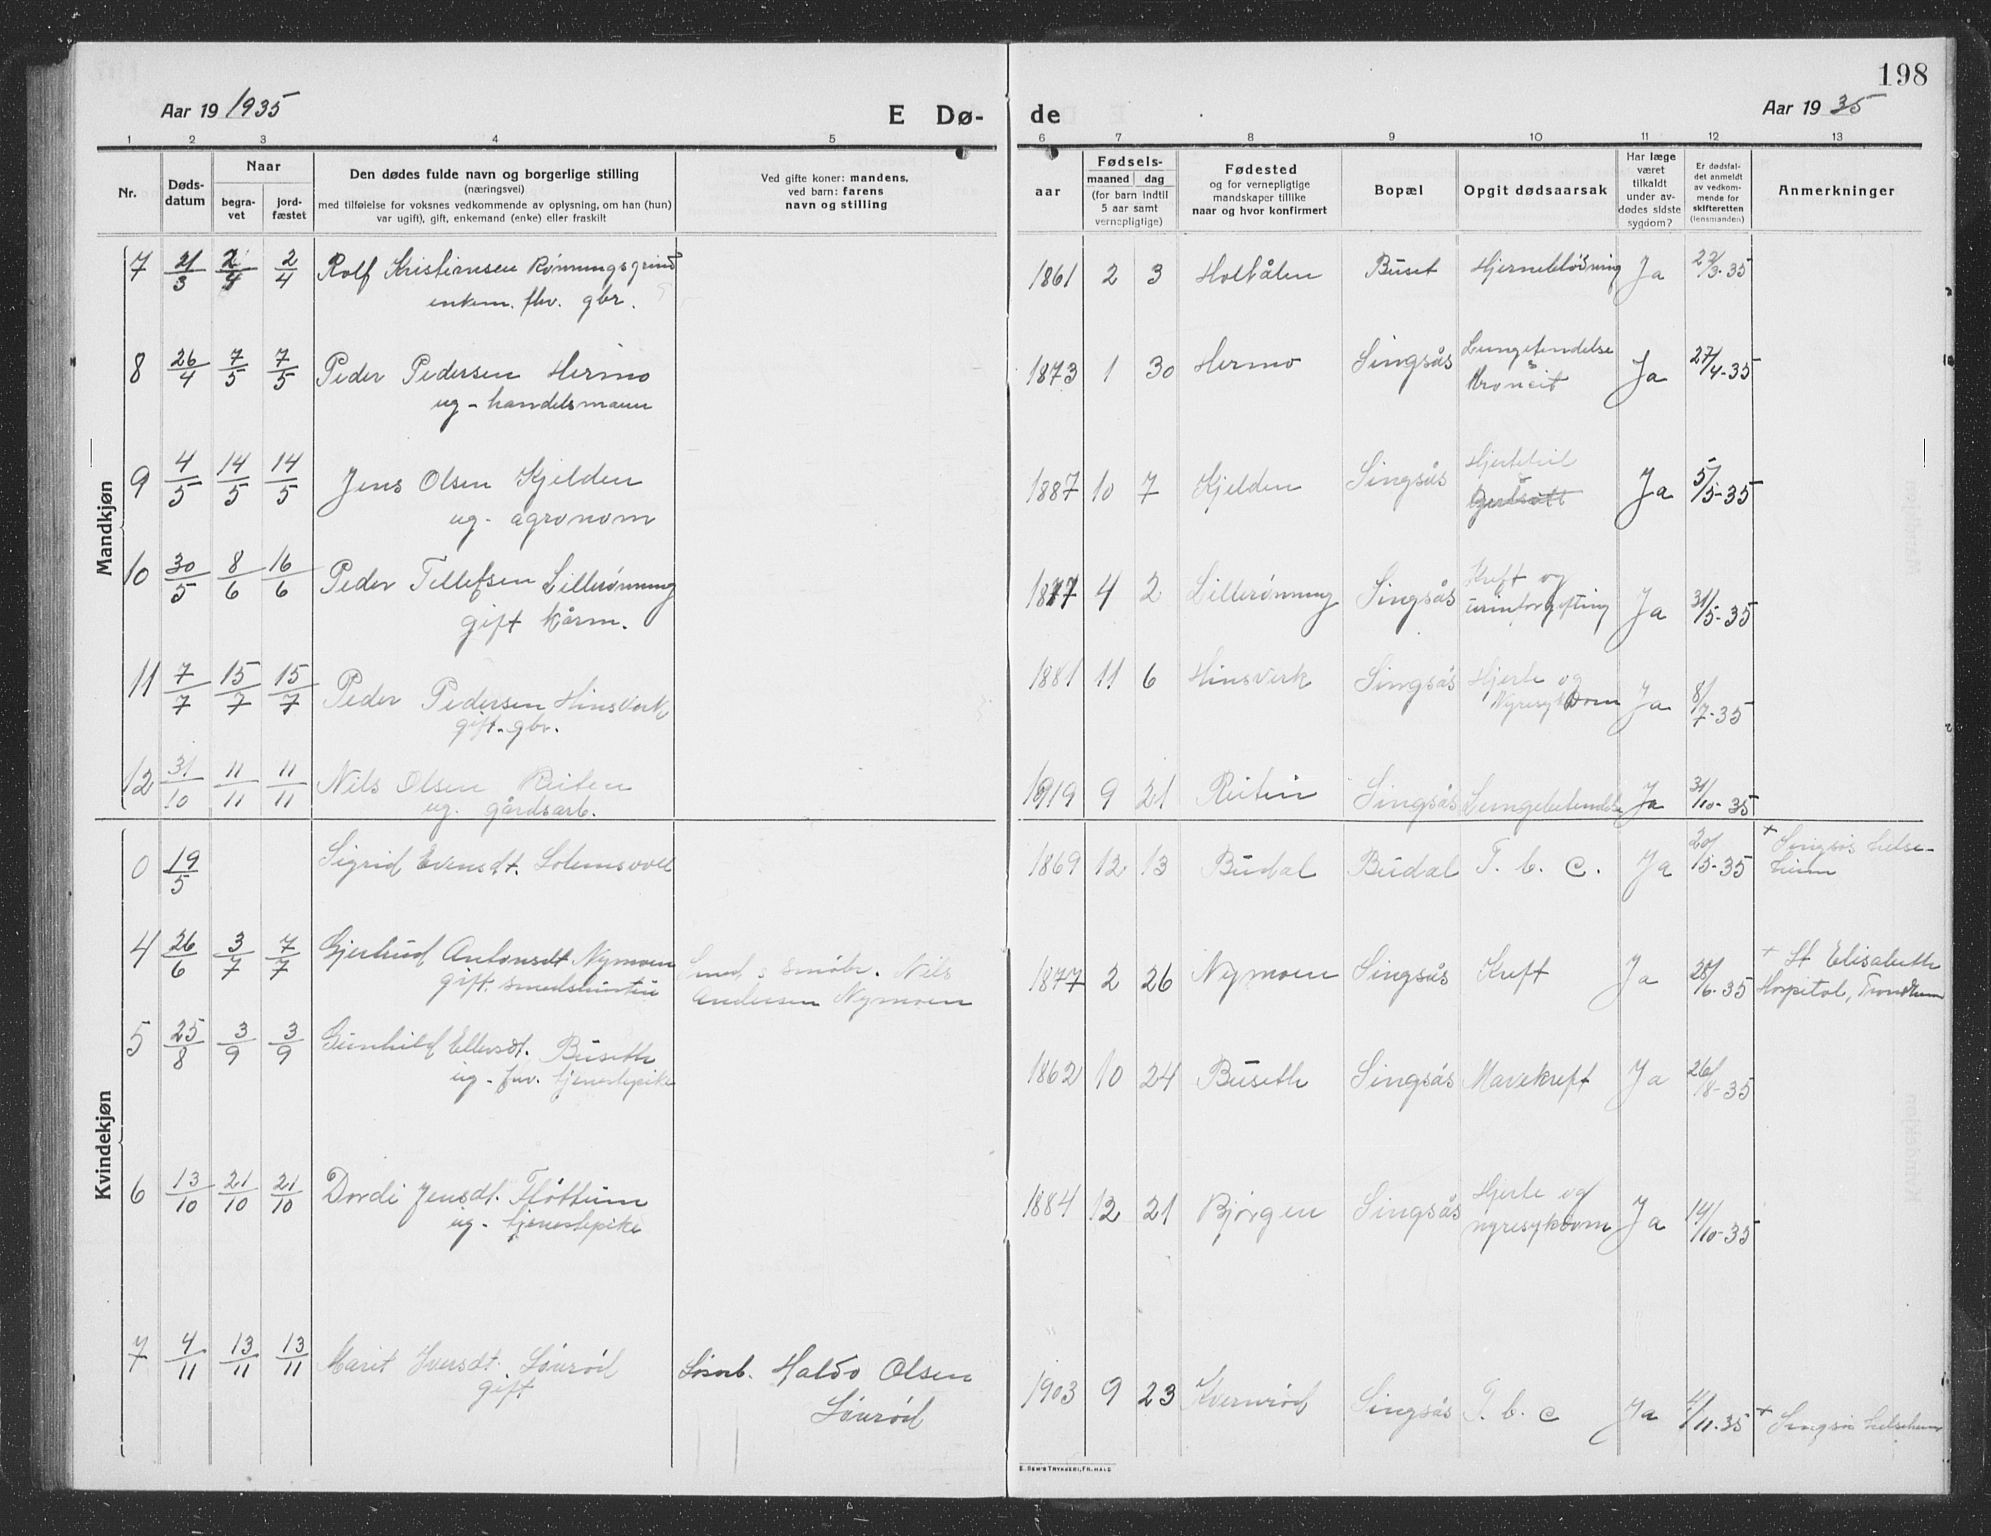 198
Aar 19 1935
E Dø-
de
Aar 19 35
1 2 3 4 5
6 7 8 9 10 11 12 13
Nr.
Døds-
datum
Naar
begra-
vet
jord-
fæstet
Den dødes fulde navn og borgerlige stilling
(næringsvei)
med tilføielse for voksnes vedkommende av oplysning, om han (hun)
var ugift), gift, enkemand (enke) eller fraskilt
Ved gifte koner: mandens,
ved barn: farens
navn og stilling
aar
Fødsels-
maaned dag
(for barn indtil
5 aar samt
vernepligtige)
Fødested
og for vernepligtige
mandskaper tillike
naar og hvor konfirmert
Bopæl
Opgit dødsaarsak
Har læge
været
tilkaldt
under av-
dødes sidste
sygdom?
Er dødsfal-
det anmeldt
av vedkom-
mende for
skifteretten
(lensmanden)
Anmerkninger
Mandkjøn
7 21/3 2/4 2/4 Rolf Kristiansen Rønningsgrind
enkem. fhv. gbr.
1861 2 3 Holtålen Buset Hjerneblødning Ja 22/3-35
8 26/4 7/5 7/5 Peder Pedersen Hermo
ug - handelsmann
1873 1 30 Hermo Singsås Lungetendelse
Ja 27/4-35
9 4/5 14/5 14/5 Jens Olsen Kjelden
ug. agronom
1887 10 7 Kjelden Singsås Hjertefeil
Ja 5/5-35
10 30/5 8/6 16/6 Peder Tellefsen Lillerønning
gift kårm.
1877 4 2 Lillerønning Singsås Kreft og
urinforgifting Ja 31/5-35
11 7/7 15/7 15/7 Peder Pedersen Hinsverk
gift. gbr.
1881 11 6 Hinsverk Singsås Hjerte og
Nyresykdom Ja 8/7-35
12 31/10 11/11 11/11 Nils Olsen Reiten
ug. gårdsarb.
1919 9 21 Reiten Singsås Lungebetendelse Ja 31/10-35
Kvindekjøn
0 19/5 Sigrid Evensdt. Solemsvoll
1869 12 13 Budal Budal T. b. c. Ja 20/5-35 + Singsås helse-
heim
4 26/6 3/7 7/7 Gjertrud Antonsdt Nymoen
gift. smedshustru
Smed & småbr. Nils
Andersen Nymoen
1877 2 26 Nymoen Singsås Kreft Ja 28/6-35 + St Elisabeth
Hospital, Trondheim
5 25/8 3/9 3/9 Gunhild Ellevsdt. Buseth
ug - fhv. tjenestepike
1862 10 24 Buseth Singsås Mavekreft Ja 26/8-35
6 13/10 21/10 21/10 Dordi Jensdt. Fløttum
ug - tjenestepike
1884 12 21 Bjørgen Singsås Hjerte og
nyresykdom Ja 14/10-35
7 4/11 13/11 13/11 Marit Iversdt.
gift
Haldo Olsen
1903 9 23 Kvernrød Singsås T. b. c Ja 4/11-35 + Singsås helseheim
E. SEM'S TRYKKERI, FR.HALD